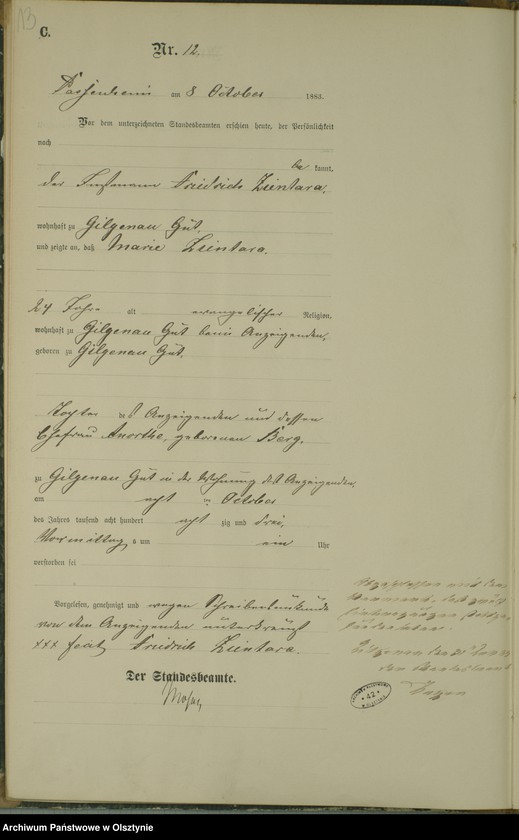 13
C.
Nr. 12.
Passenheim am 8 October 1883.
Vor dem unterzeichneten Standesbeamten erschien heute, der Persönlichkeit
nach
be kannt,
der Instmann Friedrich Zientara,
wohnhaft zu Gilgenau Gut,
und zeigte an, daß Marie Zientara,
24 Jahre alt evangelischer Religion,
wohnhaft zu Gilgenau Gut beim Anzeigenden,
geboren zu Gilgenau Gut,
Tochter des Anzeigenden und dessen
Ehefrau Anorthe, geborenen Berg,
zu Gilgenau Gut in der Wohnung des Anzeigenden,
am acht ten October
des Jahres tausend acht hundert acht zig und drei,
Vormittag s um ein Uhr
verstorben sei
Vorgelesen, genehmigt und wegen Schreibensunkunde
von dem Anzeigenden unterkreuzt
+++ fecit Friedrich Zientara.
Der Standesbeamte.
42
Archiwum Państwowe w Olsztynie